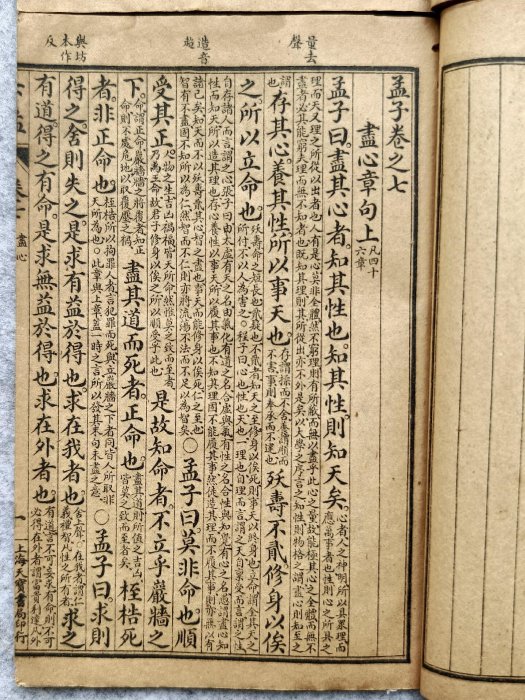 量去聲
造音
與坊本作反
孟子卷之七
盡心章句上 凡四十六章
孟子曰盡其心者知其性也知其性則知天矣 心者人之神明所以具衆理而應萬事者也性則心之所具之
理而天又理之所從以出者也人有是心莫非全體然不窮理則有所蔽而無以盡乎此心之量故能極其心之全體而無不
盡者必其能窮夫理而無不知者也既知其理則其所從出亦不外是矣以大學之序言之知性則物格之謂盡心則知至之
謂也 存其心養其性所以事天也 存謂操而不舍養謂順而不害事則奉承而不違也 殀壽不貳修身以俟
之所以立命也 殀壽命之短長也貳疑也不貳者知天之至修身以俟死則事天以終身也立命謂全其天之所付不以人為害之○程子曰心也性也天也一理也自理而言謂之天自稟受而言謂之性
自存諸人而言謂之心張子曰由太虛有天之名由氣化有道之名合虛與氣有性之名合性與知覺有心之名愚謂盡心知
性而知天所以造其理也存心養性以事天所以履其事也不知其理固不能履其事然徒造其理而不履其事則亦無以有
諸己矣知天而不以殀壽貳其心智之盡也事天而能修身以俟死仁之至也智有不盡固不知所以為仁然智而不仁則亦將流蕩不法而不足以為智矣 ○孟子曰莫非命也順
受其正 人物之生吉凶禍福皆天所命然惟莫之致而至者乃為正命故君子修身以俟之所以順受乎此也 是故知命者不立乎巖牆之
下 命謂正命巖牆牆之將覆者知正命則不處危地以取覆壓之禍 盡其道而死者正命也 盡其道則所值之吉凶皆莫之致而至者矣 桎梏死
者非正命也 桎梏所以拘罪人者言犯罪而死與立巖牆之下者同皆人所取非天所為也○此章與上章蓋一時之言所以發其末句未盡之意 ○孟子曰求則
得之舍則失之是求有益於得也求在我者也 舍上聲○在我者謂仁義禮智凡性之所有者 求之
有道得之有命是求無益於得也求在外者也 有道言不可妄求有命則不可必得在外者謂富貴利達凡外
卷七 盡心 一 上海天寶書局印行